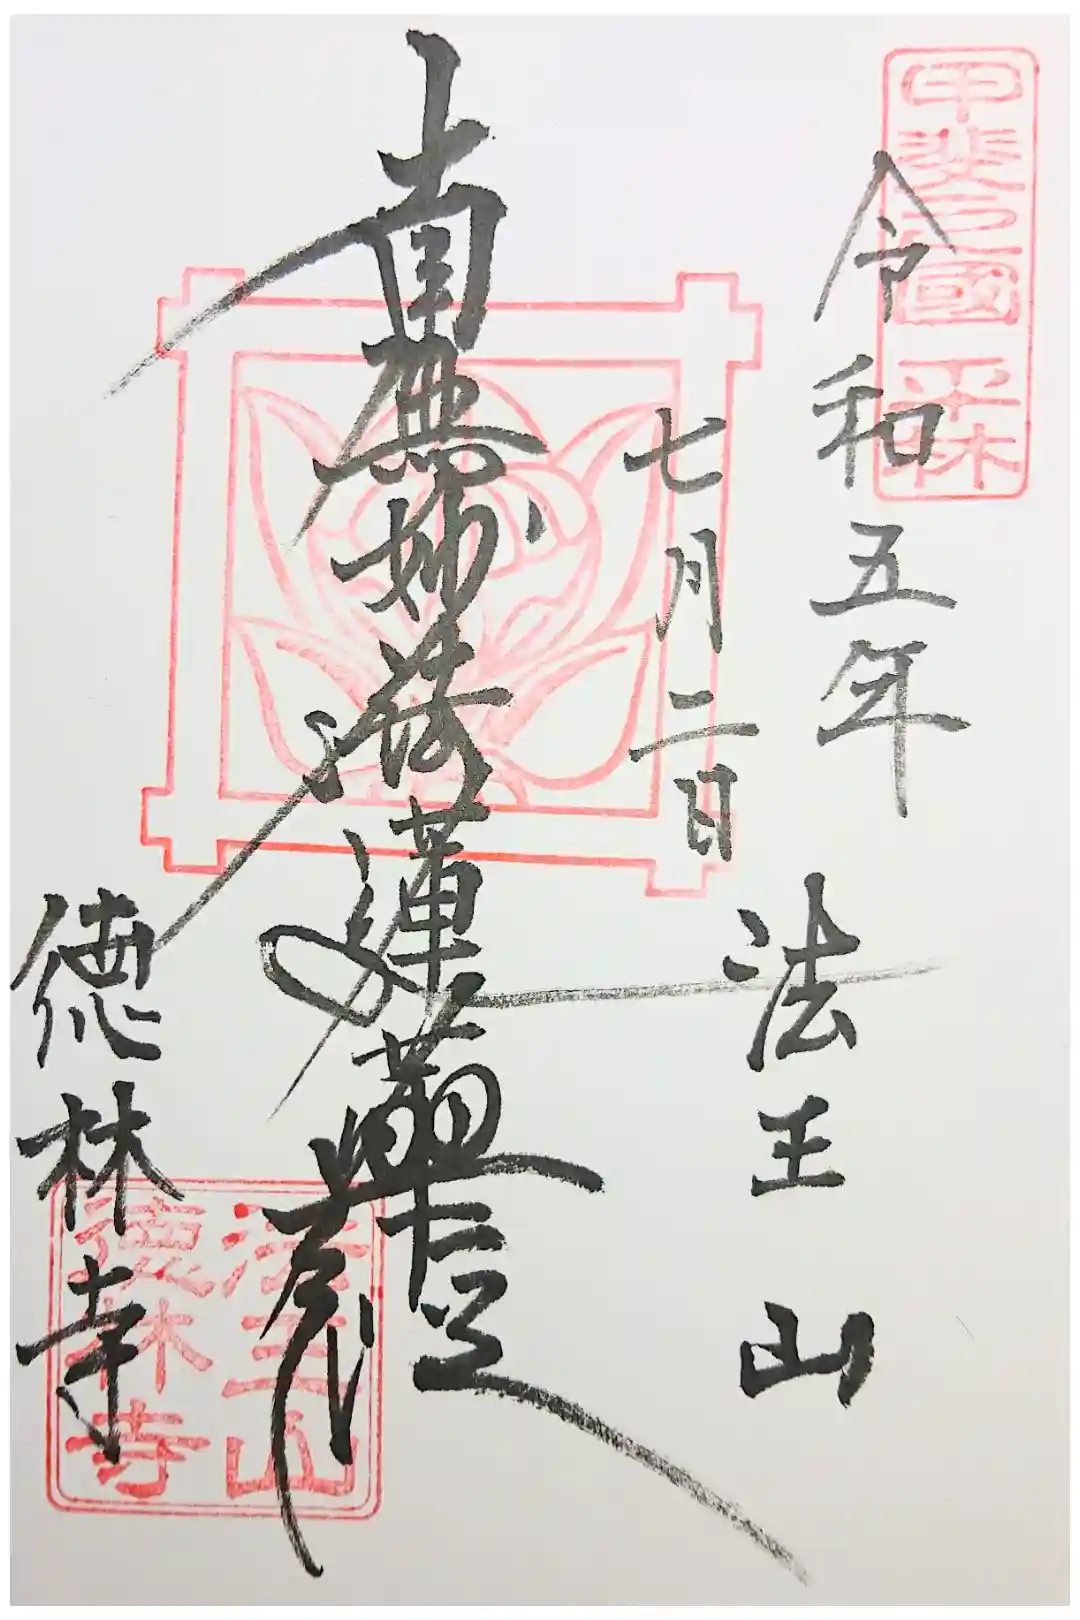 甲斐之國 平林
令和五年
七月二日
法王山
南無妙法蓮華經
徳林寺
法王山
徳林寺